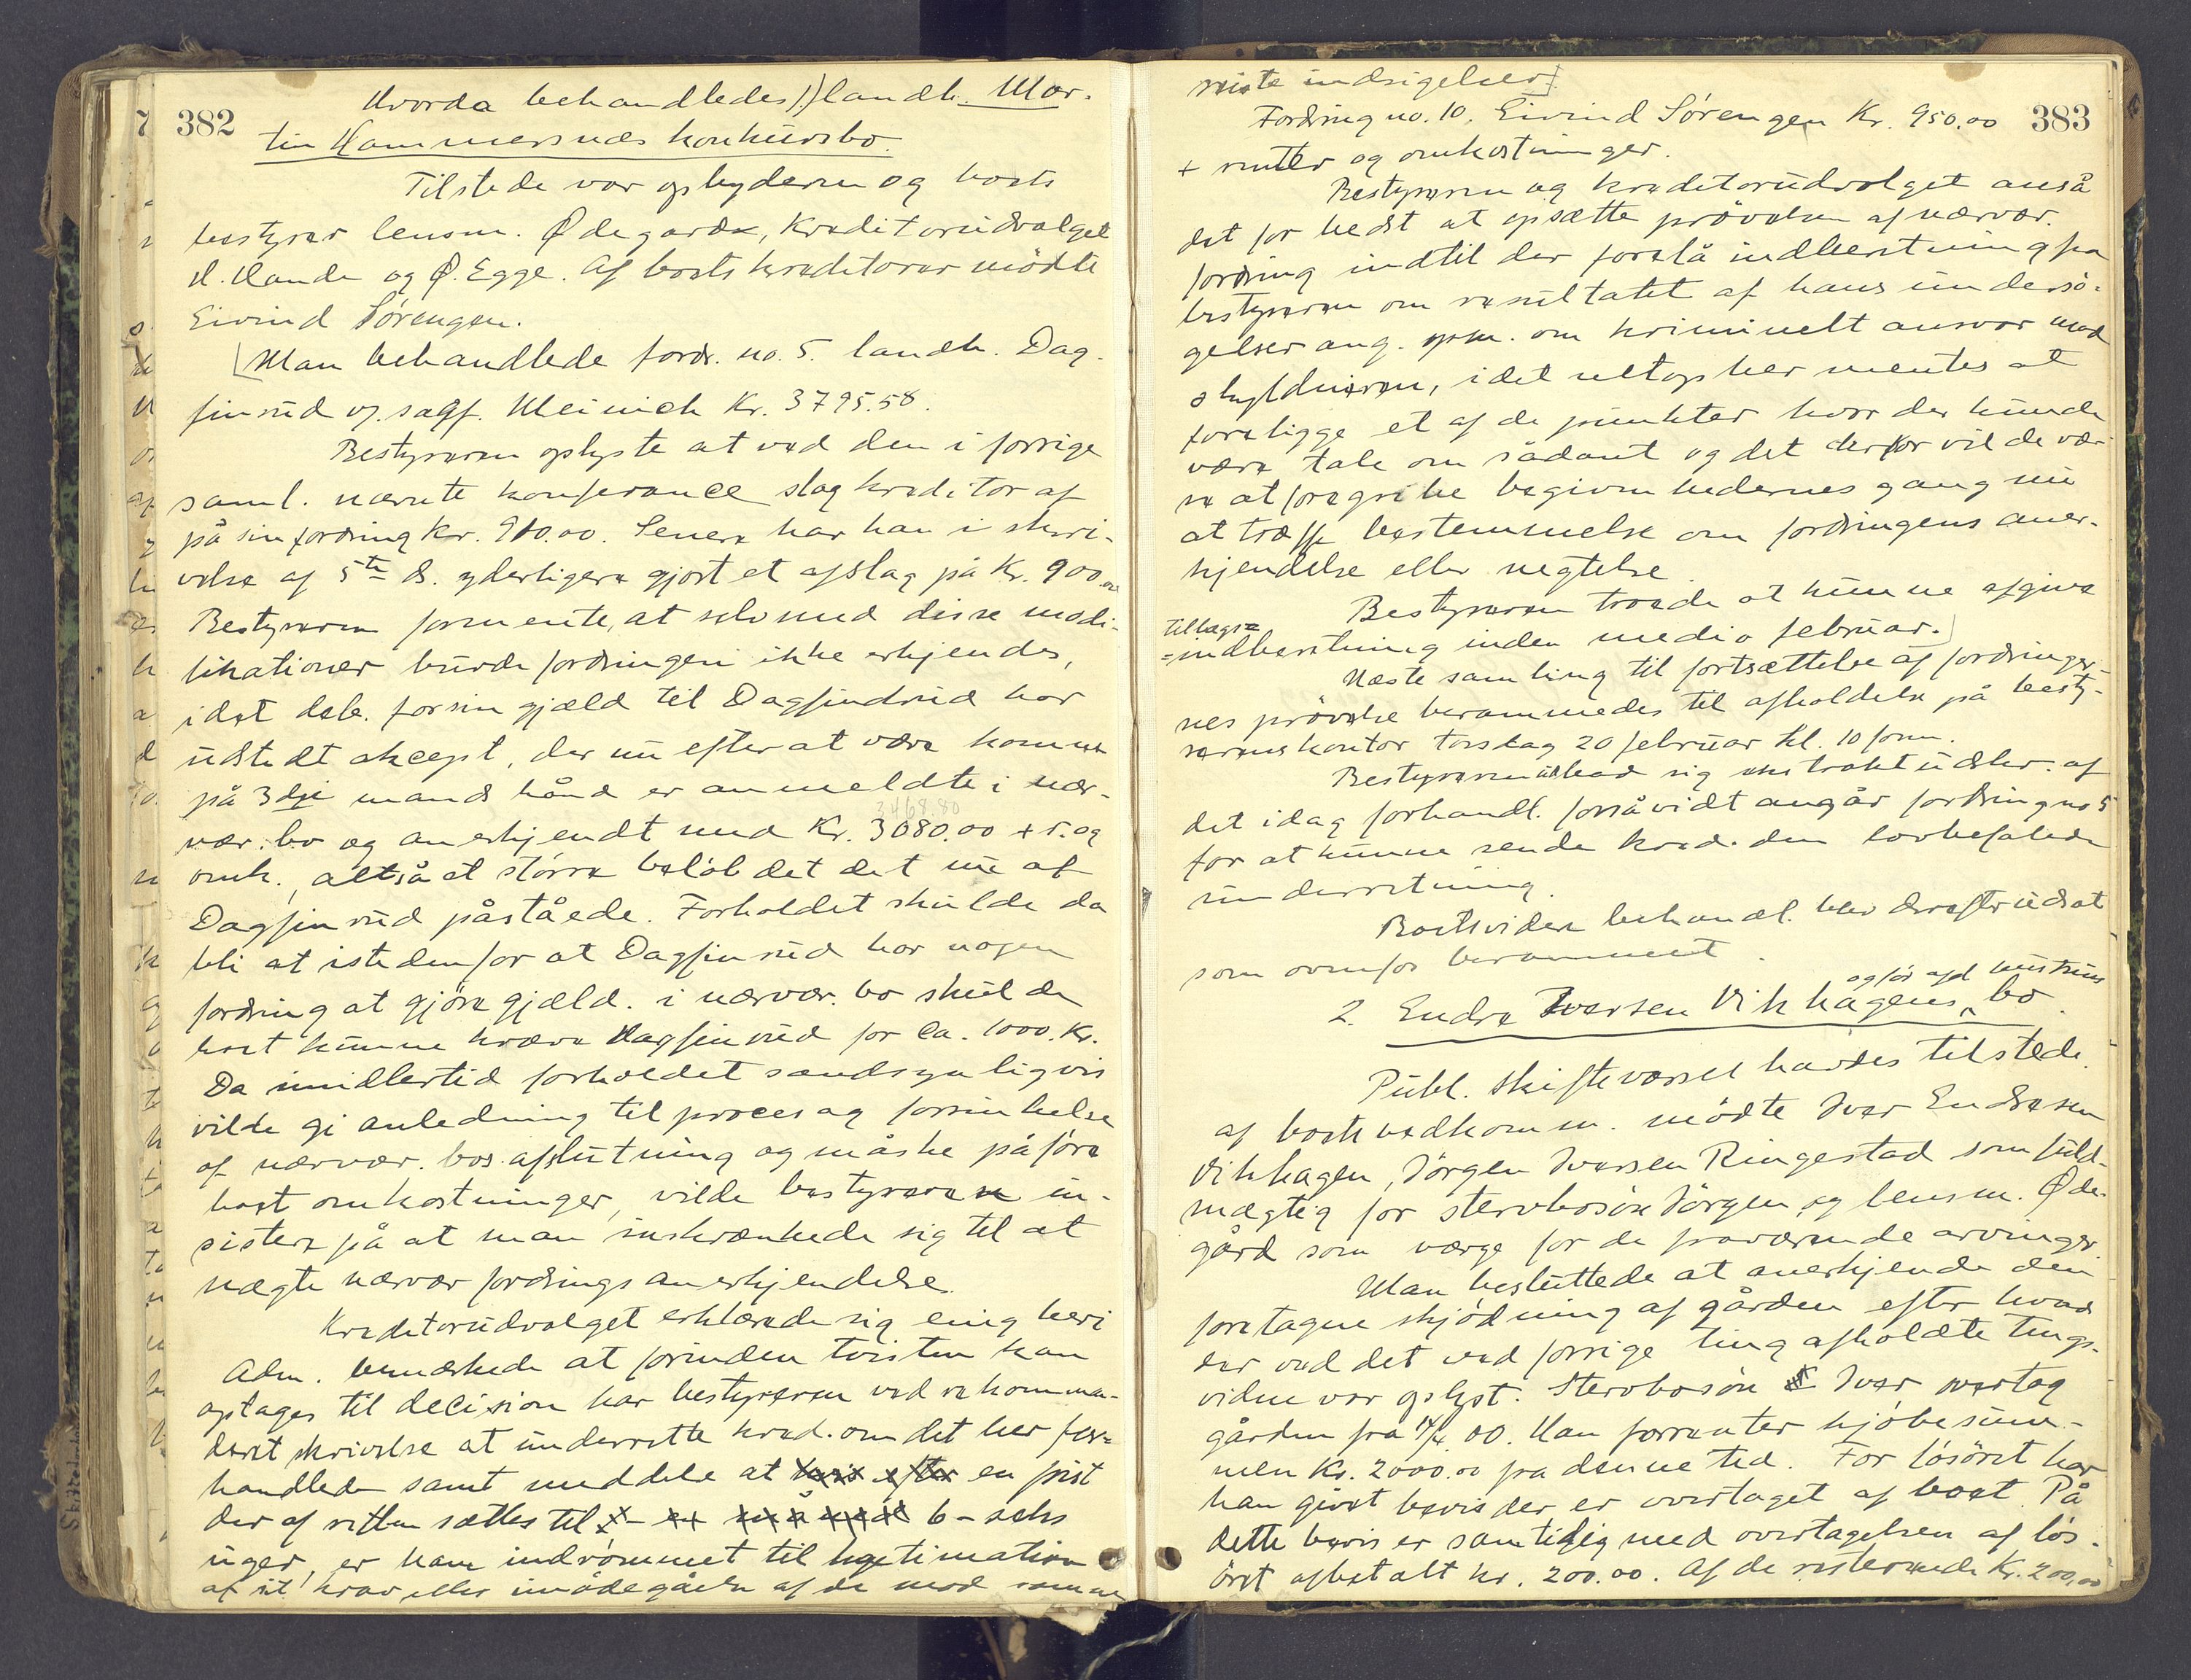 382
Hvorda behandledes 1) landh. Mar-
tin Hammersnæs konkursbo.
Tilstede var ophyderen og boets
bestyrer lensm. Ødegaard, kreditorudvalget
H. Hande og Ø. Egge. Af boets kreditorer mödte
Eivind Sörengen.
Man behandlede fordr. no. 5. landh. Dag-
finrud v. sagf. Meinich Kr. 3795.58.
Bestyreren oplyste at ved den i forrige
saml. nævnte konferance slog kreditor af
på sin fordring Kr. 910.00. Senere har han i skri-
velse af 5te ds. yderligere gjort et afslag på Kr. 900.00
Bestyreren formente, at selv med disse modi-
fikationer burde fordringen ikke erkjendes,
idet deb. for sin gjæld til Dagfindrud har
udstedt akcept, der nu efter at være kommet
på 3dje mands hånd er anmeldte i nær-
3468.80
vær. bo og anerkjendt med Kr. 3080.00 + r. og
omk., altså et större belöb det det nu af
Dagfinrud påståede. Forholdet skulde da
bli at istedenfor at Dagfinrud har nogen
fordring at gjöre gjæld. i nærvær. bo skulde
boet kunne kræve Dagfinrud for ca. 1000. Kr.
Da imidlertid forholdet sandsynligvis
vilde gi anledning til proces og forsinkelse
af nærvær. bos afslutning og måske påföre
boet omkostninger, vilde bestyreren in-
sistere på at man inskrænkede sig til at
nægte nærvær fordrings anerkjendelse.
Kreditorudvalget erklærede sig enig heri
Adm. bemærkede at forinden tvisten kan
optages til decision har bestyreren ved rekomman-
deret skrivelse at underrette kred. om det her for-
handlede samt meddele at en frist
der af retten sættes til 6 - seks
uger, er ham indrömmet til legitimation
af sit krav eller imödegåelse af de mod samme
383
reiste indsigelser.
Fordring no. 10. Eivind Sörengen Kr. 950.00
+ renter og omkostninger.
Bestyreren og kreditorudvalget anså
det for bedst at opsætte prövelsen af nærvær.
fordring indtil der forelå indberetning fra
bestyreren om resultatet af hans undersö-
gelser ang. spm. om kriminelt ansvar mod
skyldneren, idet netop her mentes at
foreligge et af de punkter hvor der kunde
være tale om sådant og det derfor vilde væ-
re at foregribe begivenhedernes gang nu
at træffe bestemmelse om fordringens aner-
kjendelse eller negtelse.
Bestyreren troede at kunne afgive
tillægs=
=indberetning inden medio februar.
Næste samling til fortsættelse af fordringer-
nes prövelse berammedes til afholdelse på besty-
rerens kontor torsdag 20 februar kl. 10 form.
Bestyreren udbad sig ekstraktudskr. af
det idag forhandl. forsåvidt angår fordring no 5
for at kunne sende kred. den lovbefalede
underretning.
Boets videre behandl. blev derefter udsat
som ovenfor berammet.
og for afd hustrus
2. Endre Iversen Vikhagens bo.
Publ. skiftevarsel havdes tilstede.
af boets vedkomm. mödte Iver Endresen
Vikhagen, Jörgen Iversen Ringestad som fuld-
mægtig for stervbosön Jörgen og lensm. Öde-
gård som værge for de fraværende arvinger.
Man besluttede at anerkjende den
foretagne skjödning af gården efter hvad
der ved det ved forrige ting afholdte tings-
vidne var oplyst. Stervbosön Iver overtog
gården fra 14/4 00. Han forrenter kjöbesum-
men Kr. 2000.00 fra denne tid. For lösöret har
han givet bevis der er overtaget af boet. På
dette bevis er samtidig med overtagelsen af lös-
öret afbetalt kr. 200.00. Af de resterende Kr. 200.00